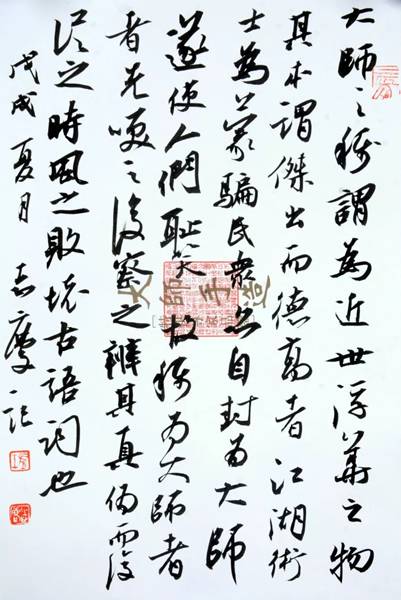 大師之稱謂為近世浮華之物
其本謂傑出而德高者江湖術
士為蒙騙民衆自封為大師
遂使人們耻笑故稱為大師者
者先之後察之辨其真偽而後
之時風之敗壞古語詞也
戊戌夏月 志慶記
大師手造